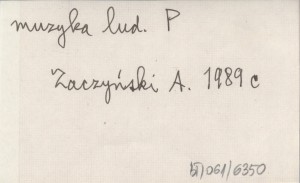 muzyka lud. P
Zaczyński A. 1989 c
061/6350